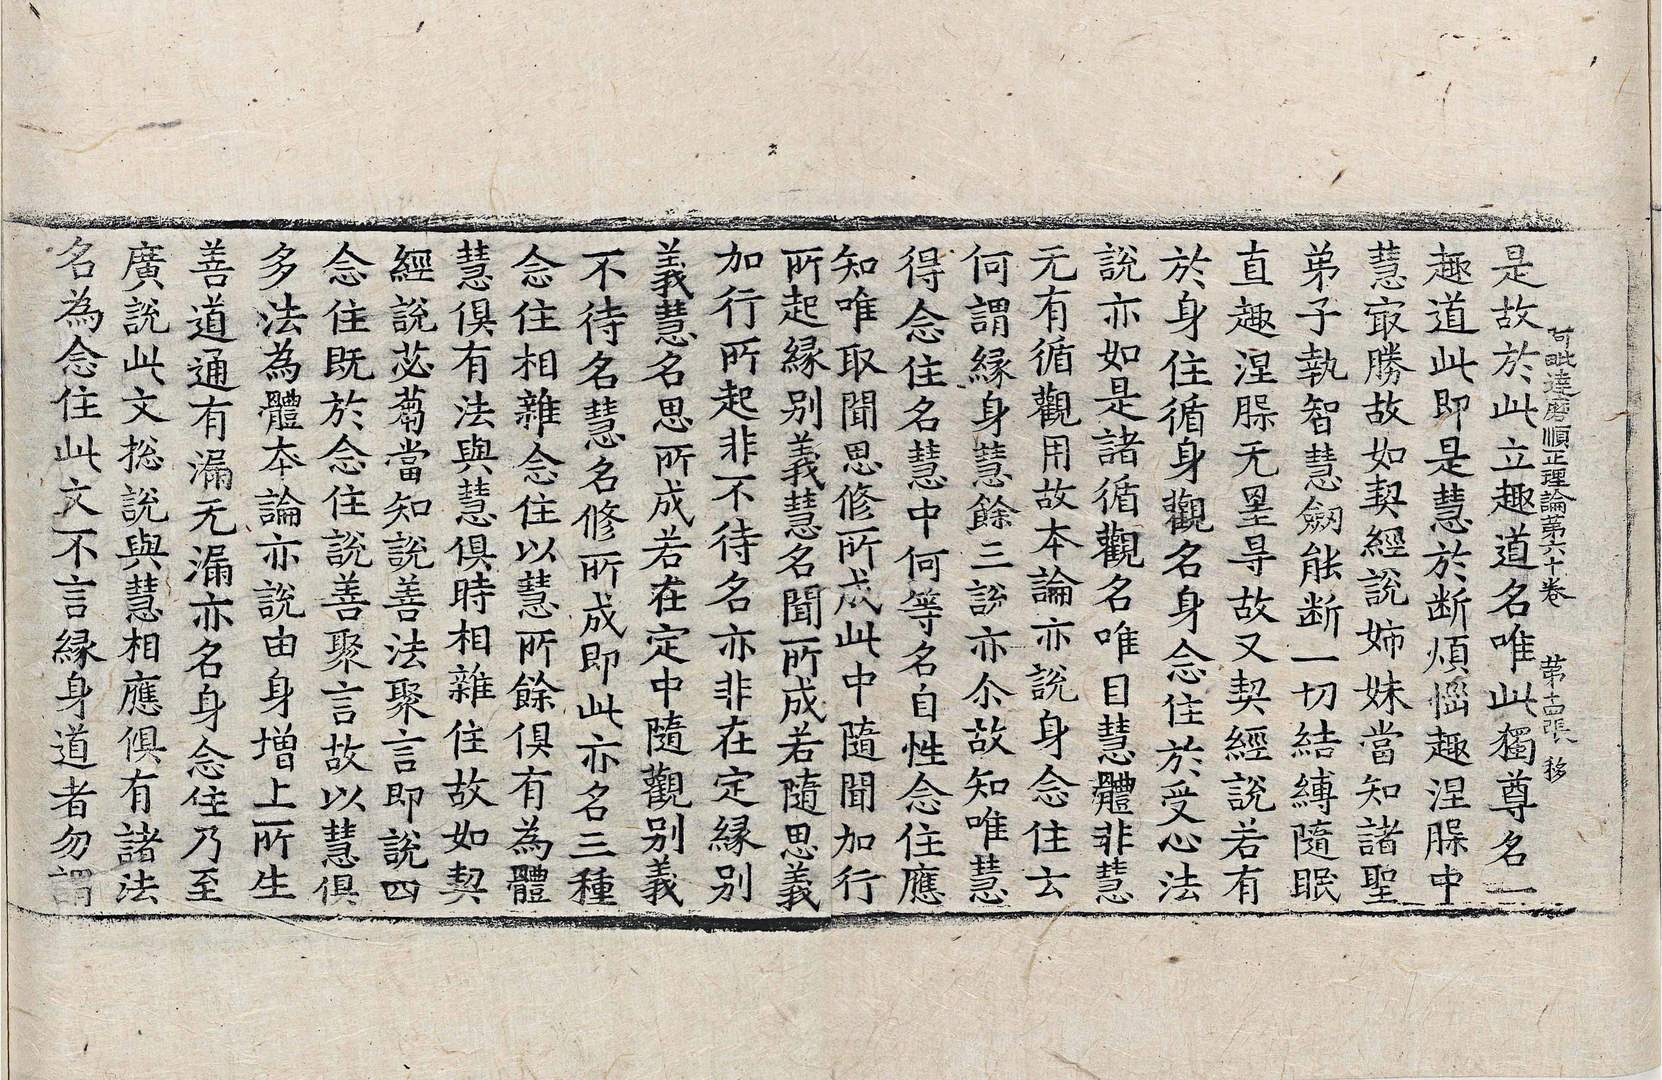 阿毗達磨順正理論第六十卷　第十四張　移
是故於此立趣道名唯此獨尊名一
趣道此即是慧於断煩惱趣涅槃中
慧㝡勝故如契經說姊妹當知諸聖
弟子執智慧劒能断一切結縛隨眠
直趣涅槃无罣㝵故又契經說若有
於身住循身觀名身念住於受心法
說亦如是諸循觀名唯目慧體非慧
无有循觀用故本論亦說身念住云
何謂縁身慧餘三說亦尒故知唯慧
得念住名慧中何等名自性念住應
知唯取聞思修所成此中隨聞加行
所起縁别義慧名聞所成若隨思義
加行所起非不待名亦非在定縁别
義慧名思所成若在定中隨觀别義
不待名慧名修所成即此亦名三種
念住相雜念住以慧所餘俱有為體
慧俱有法與慧俱時相雜住故如契
經說苾蒭當知說善法聚言即說四
念住既於念住說善聚言故以慧俱
多法為體本論亦說由身增上所生
善道通有漏无漏亦名身念住乃至
廣說此文捴說與慧相應俱有諸法
名為念住此文不言縁身道者勿謂